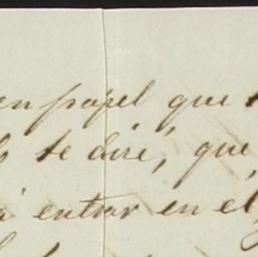 en papel que
te diré, que
entrar en el